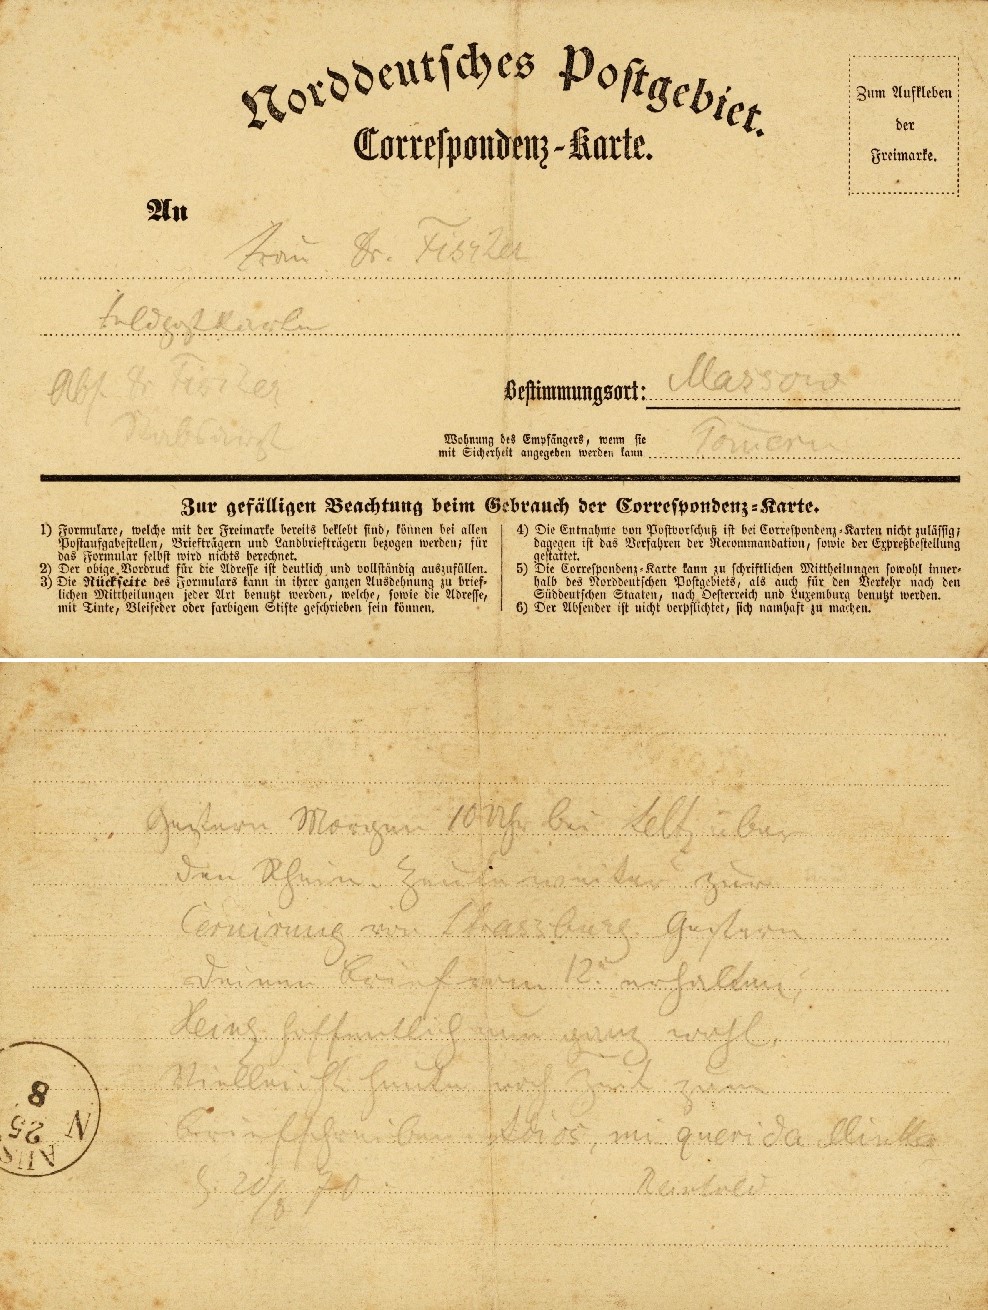 Norddeutsches Postgebiet.
Correspondenz-Karte.
Zum Aufkleben
der
Freimarke.
An
Frau Dr. Fischer
Feldpostkarte
Abs. Dr Fischer
Stabsarzt
Bestimmungsort: Massow
Wohnung des Empfängers, wenn sie
mit Sicherheit angegeben werden kann
Pomern
Zur gefälligen Beachtung beim Gebrauch der Correspondenz-Karte.
1) Formulare, welche mit der Freimarke bereits beklebt sind, können bei allen
Postaufgabestellen, Briefträgern und Landbriefträgern bezogen werden; für
das Formular selbst wird nichts berechnet.
2) Der obige Vordruck für die Adresse ist deutlich und vollständig auszufüllen.
3) Die Rückseite des Formulars kann in ihrer ganzen Ausdehnung zu brief-
lichen Mittheilungen jeder Art benutzt werden, welche, sowie die Adresse,
mit Tinte, Bleifeder oder farbigem Stifte geschrieben sein können.
4) Die Entnahme von Postvorschuß ist bei Correspondenz-Karten nicht zulässig;
dagegen ist das Verfahren der Recommandation, sowie der Expreßbestellung
gestattet.
5) Die Correspondenz-Karte kann zu schriftlichen Mittheilungen sowohl inner-
halb des Norddeutschen Postgebiets, als auch für den Verkehr nach den
Süddeutschen Staaten, nach Oesterreich und Luxemburg benutzt werden.
6) Der Absender ist nicht verpflichtet, sich namhaft zu machen.
Gestern Morgen 10 Uhr bei Seltz über
den Rhein. Heute weiter zur
Cernirung von Strassburg. Gestern
deinen Brief vom 12. erhalten;
Heinz hoffentlich nun ganz wohl.
Vielleicht heute noch Zeit zum
Briefschreiben. Adios, mi querida
20/8 70 Reinhold
8
25
N